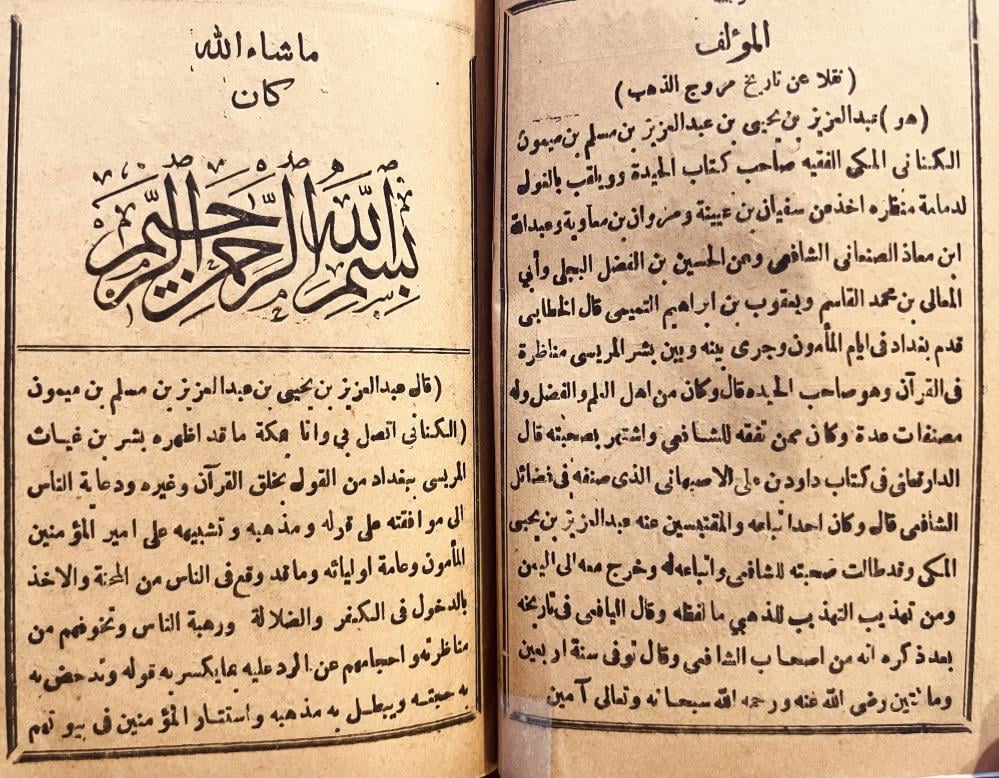 المؤلف
( نقلا عن تاريخ مروج الذهب )
( هو ) عبدالعزيز بن يحيى بن عبدالعزيز بن مسلم بن ميمون
الكنانى المكي الفقيه صاحب كتاب الحيدة وويلقب بالغول
لدمامة منظره اخذ عن سفيان بن عيينة ومروان بن معاوية وعبدالله
ابن معاذ الصنعانى الشافعى وعن الحسين بن الفضل البجلى وأبي
المعالى بن محمد القاسم ويعقوب بن ابراهيم التميمى قال الخطابى
قدم بغداد فى ايام المأمون وجرى بينه وبين بشر المريسى مناظرة
فى القرآن وهو صاحب الحيده قال وكان من اهل العلم والفضل وله
مصنفات عدة وكان ممن تفقه للشافعى واشتهر بصحبته قال
الدارقطنى فى كتاب داود بن على الاصبهانى الذى صنفه فى فضائل
الشافعى قال وكان احد اتباعه والمقتبسين عنه عبدالعزيز بن يحيى
المكى وقد طالت صحبته للشافعى واتباعه له وخرج معه الى اليمن
ومن تهذيب التهذيب للذهبي ما لفظه وقال اليافعى فى تاريخه
بعد ذكره انه من اصحاب الشافعى وقال توفى سنة اربعين
ومائتين رضى الله عنه ورحمه الله سبحانه وتعالى آمين
ماشاء الله
كان
بسم الله الرحمن الرحيم
( قال عبدالعزيز بن يحيى بن عبدالعزيز بن مسلم بن ميمون
( الكنانى اتصل بى وانا بمكة ما قد اظهره بشر بن غياث
المريسى ببغداد من القول بخلق القرآن وغيره ودعاية الناس
الى موافقته على قوله ومذهبه وتشبيهه على امير المؤمنين
المأمون وعامة اوليائه وماقد وقع فى الناس من المحنة والاخذ
بالدخول فى الكفر والضلالة ورهبة الناس وتخوفهم من
مناظرته واحجامهم عن الرد عليه بما يكسر به قوله وتدحض به
به حجته ويبطل به مذهبه واستتار المؤمنين فى بيوتهم